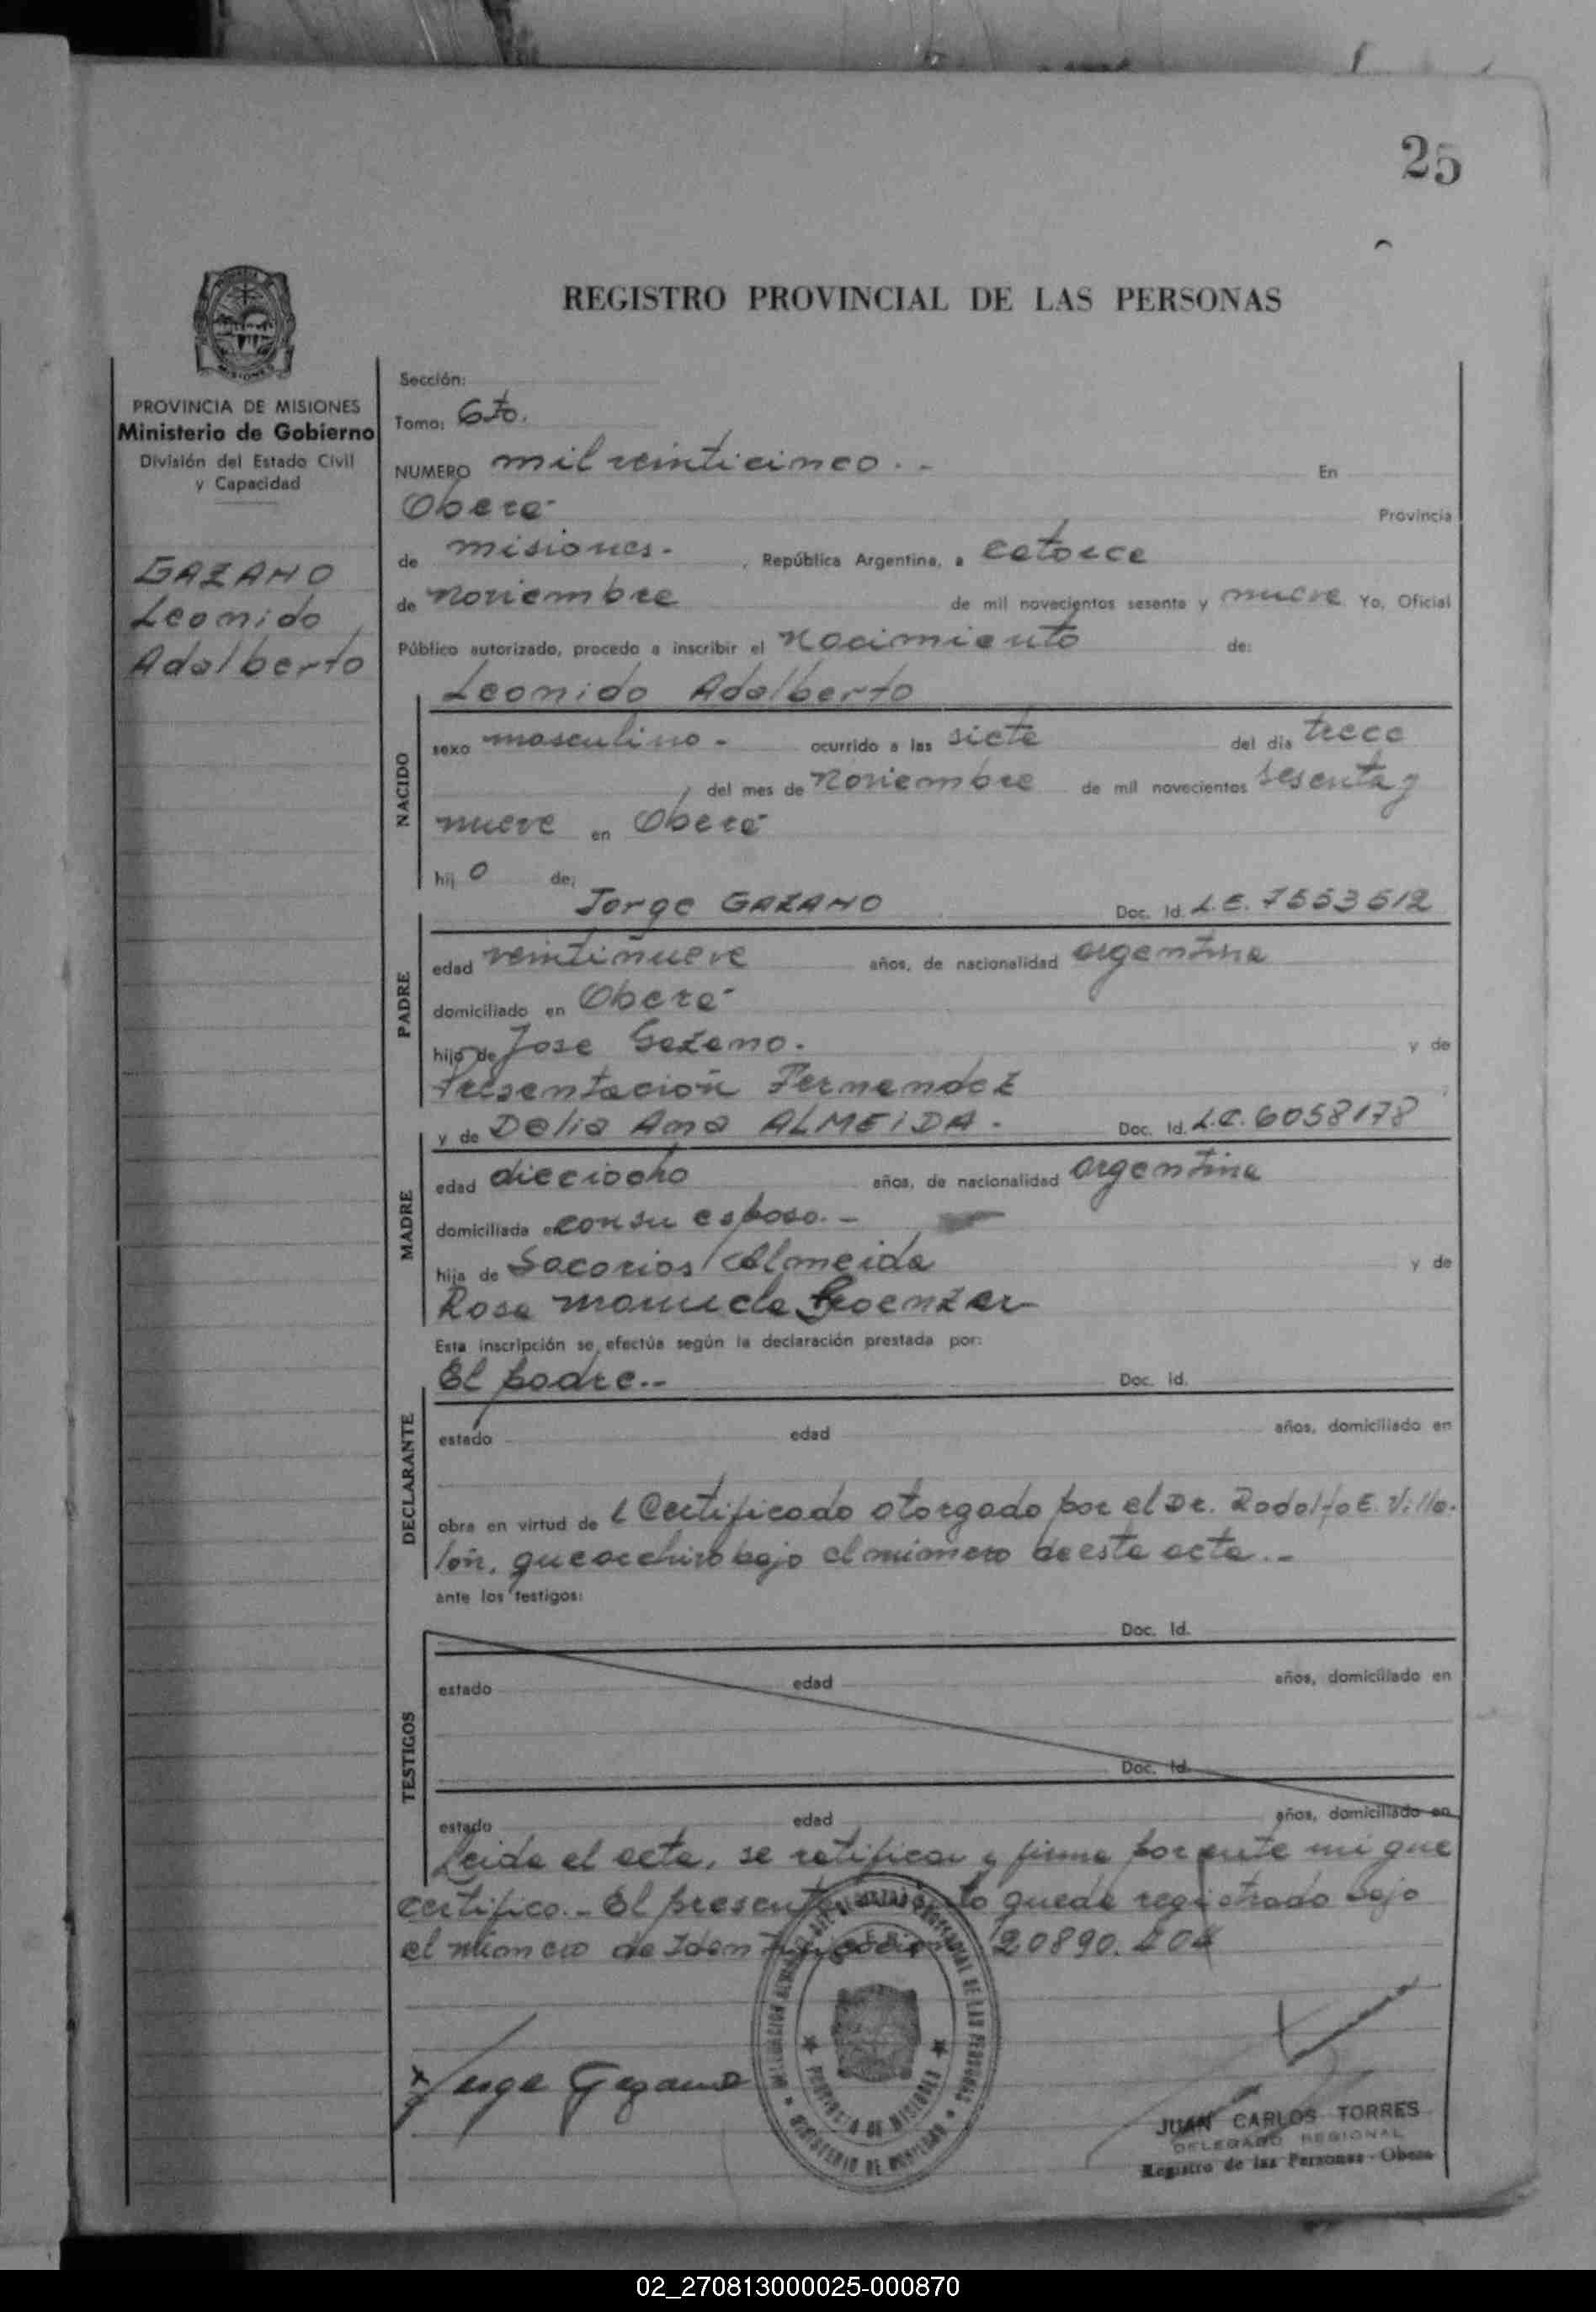 25
REGISTRO PROVINCIAL DE LAS PERSONAS
PROVINCIA DE MISIONES
Ministerio de Gobierno
División del Estado Civil
y Capacidad
GAZANO
Leonido
Adalberto
Sección:
Tomo: 6to.
NUMERO mil veinticinco. - En
Oberá Provincia
de misiones. , República Argentina, a catorce
de noviembre de mil novecientos sesenta y nueve Yo, Oficial
Público autorizado, procedo a inscribir el nacimiento de:
Leonido Adalberto
NACIDO
sexo masculino - ocurrido a las siete del día trece
, del mes de noviembre de mil novecientos sesenta y
nueve en Oberá
hijo de:
Jorge GAZANO Doc. Id. L.E. 7553612
PADRE
edad veintinueve años, de nacionalidad argentina
domiciliado en Oberá
hijo de Jose Gazano. y de
Presentación Fernandez
y de Delia Ana ALMEIDA. Doc. Id. L.C. 6058178
MADRE
edad dieciocho años, de nacionalidad argentina
domiciliada en con su esposo. -
hija de Sacarias Almeida y de
Rosa manuela
Esta inscripción se efectúa según la declaración prestada por:
El padre.-- Doc. Id.
DECLARANTE
estado edad años, domiciliado en
obra en virtud de l Certificado otorgado por el Dr. Rodolfo E. Villa-
lón, que archivo bajo el número de esta acta. -
ante los testigos:
Doc. Id.
TESTIGOS
estado edad años, domiciliado en
Doc. Id.
estado edad años, domiciliado en
Leida el acta, se ratifica y firma por ante mi que
certifico. - El presente queda registrado bajo
el número de Identificación 20890.404
Jorge Gazano
PROVINCIA DE MISIONES
MINISTERIO DE GOBIERNO
JUAN CARLOS TORRES
DELEGADO REGIONAL
Registro de las Personas - Obera
02_270813000025-000870